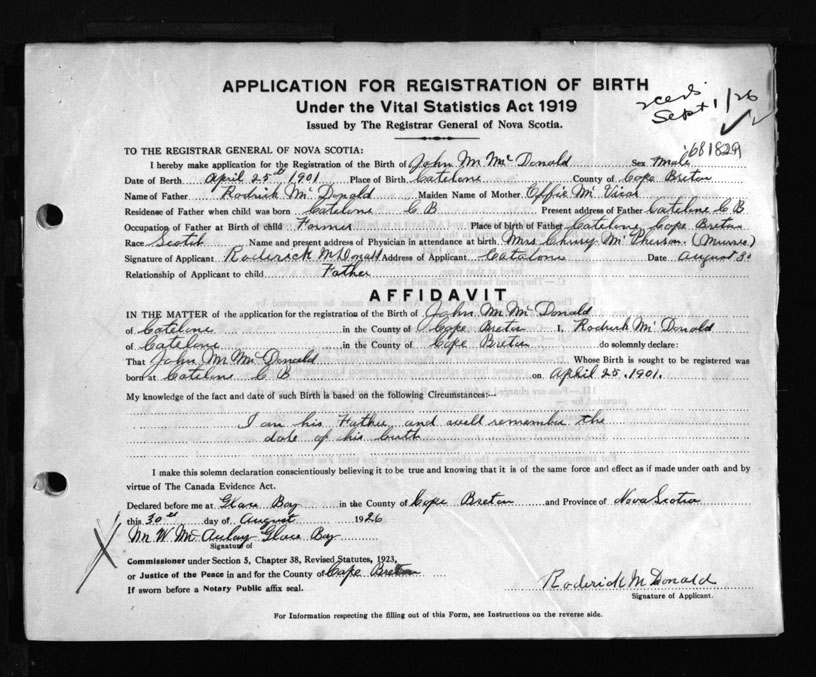 APPLICATION FOR REGISTRATION OF BIRTH
Under the Vital Statistics Act 1919
Issued by The Registrar General of Nova Scotia.
Sept 1/26
681829
TO THE REGISTRAR GENERAL OF NOVA SCOTIA:
I hereby make application for the Registration of the Birth of John M McDonald Sex Male
Date of Birth April 25th 1901 Place of Birth Catelone County of Cape Breton
Name of Father Rodrick McDonald Maiden Name of Mother Effie McVicar
Residense of Father when child was born Catelone C B Present address of Father Catelone C B
Occupation of Father at Birth of child Farmer Place of birth of Father Catelone Cape Breton
Race Scotch Name and present address of Physician in attendance at birth. Mrs McPherson (Nurse)
Signature of Applicant Roderick McDonald Address of Applicant Catalone Date August 30
Relationship of Applicant to child Father
AFFIDAVIT
IN THE MATTER of the application for the registration of the Birth of John M McDonald
of Catelone in the County of Cape Breton I, Rodrick McDonald
of Catelone in the County of Cape Breton do solemnly declare:
That John M McDonald Whose Birth is sought to be registered was
born at Catelone C B on April 25. 1901.
My knowledge of the fact and date of such Birth is based on the following Circumstances:--
I am his Father and well remember the
date of his birth
I make this solemn declaration conscientiously believing it to be true and knowing that it is of the same force and effect as if made under oath and by
virtue of The Canada Evidence Act.
Declared before me at Glace Bay in the County of Cape Breton and Province of Nova Scotia
this 30th day of August 1926
Wm W McAulay Glace Bay
Signature of
Commissioner under Section 5, Chapter 38, Revised Statutes, 1923,
or Justice of the Peace in and for the County of Cape Breton
If sworn before a Notary Public affix seal.
Roderick McDonald
Signature of Applicant.
For Information respecting the filling out of this Form, see Instructions on the reverse side.